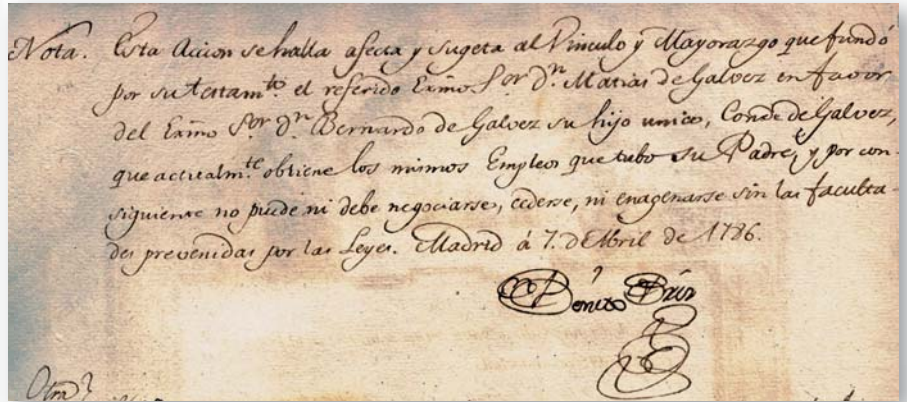 Nota. Esta Accion se halla afecta y sugeta al Vinculo y Mayorazgo que fundó
por su testam.to el referido Exmo S.or D.n Matias de Galvez en favor
del Exmo S.or D.n Bernardo de Galvez su hijo unico, Conde de Galvez,
que actualm.te obtiene los mismos Empleos que tubo su Padre, y por con-
siguiente no puede ni debe negociarse, cederse, ni enagenarse sin las faculta-
des prevenidas por las Leyes. Madrid á 7. de Abril de 1786.
Benito Briz
Otra